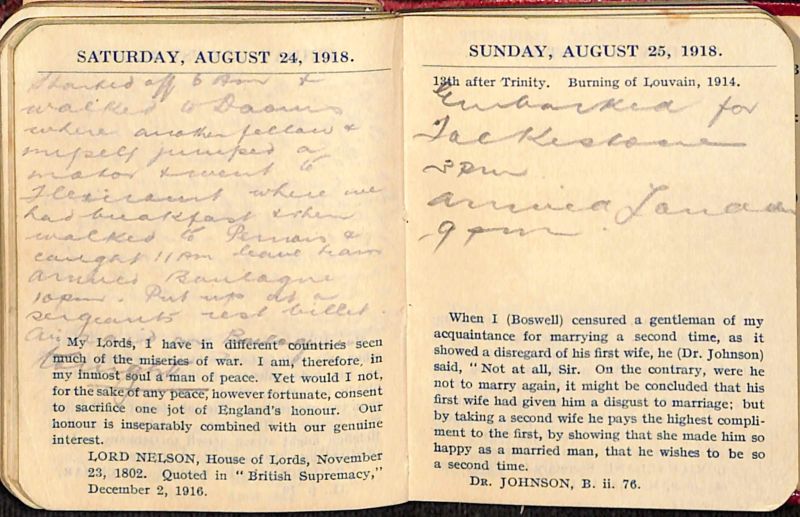 SATURDAY, AUGUST 24, 1918.
Started off 6 Am &
walked to Daours
where another fellow &
myself jumped a
motor & went to
where we
had breakfast & then
walked to &
caught 11 Am leave train
arrived Boulogne
10pm. Put up at a
sergeants rest billet.
Air raid on
tonight
My Lords, I have in different countries seen
much of the miseries of war. I am, therefore, in
my inmost soul a man of peace. Yet would I not,
for the sake of any peace, however fortunate, consent
to sacrifice one jot of England's honour. Our
honour is inseparably combined with our genuine
interest.
LORD NELSON, House of Lords, November
23, 1802. Quoted in "British Supremacy,"
December 2, 1916.
SUNDAY, AUGUST 25, 1918.
13th after Trinity. Burning of Louvain, 1914.
Embarked for
Folkestone
3pm
arrived London
9pm.
When I (Boswell) censured a gentleman of my
acquaintance for marrying a second time, as it
showed a disregard of his first wife, he (Dr. Johnson)
said, "Not at all, Sir. On the contrary, were he
not to marry again, it might be concluded that his
first wife had given him a disgust to marriage; but
by taking a second wife he pays the highest compli-
ment to the first, by showing that she made him so
happy as a married man, that he wishes to be so
a second time.
DR. JOHNSON, B. ii. 76.